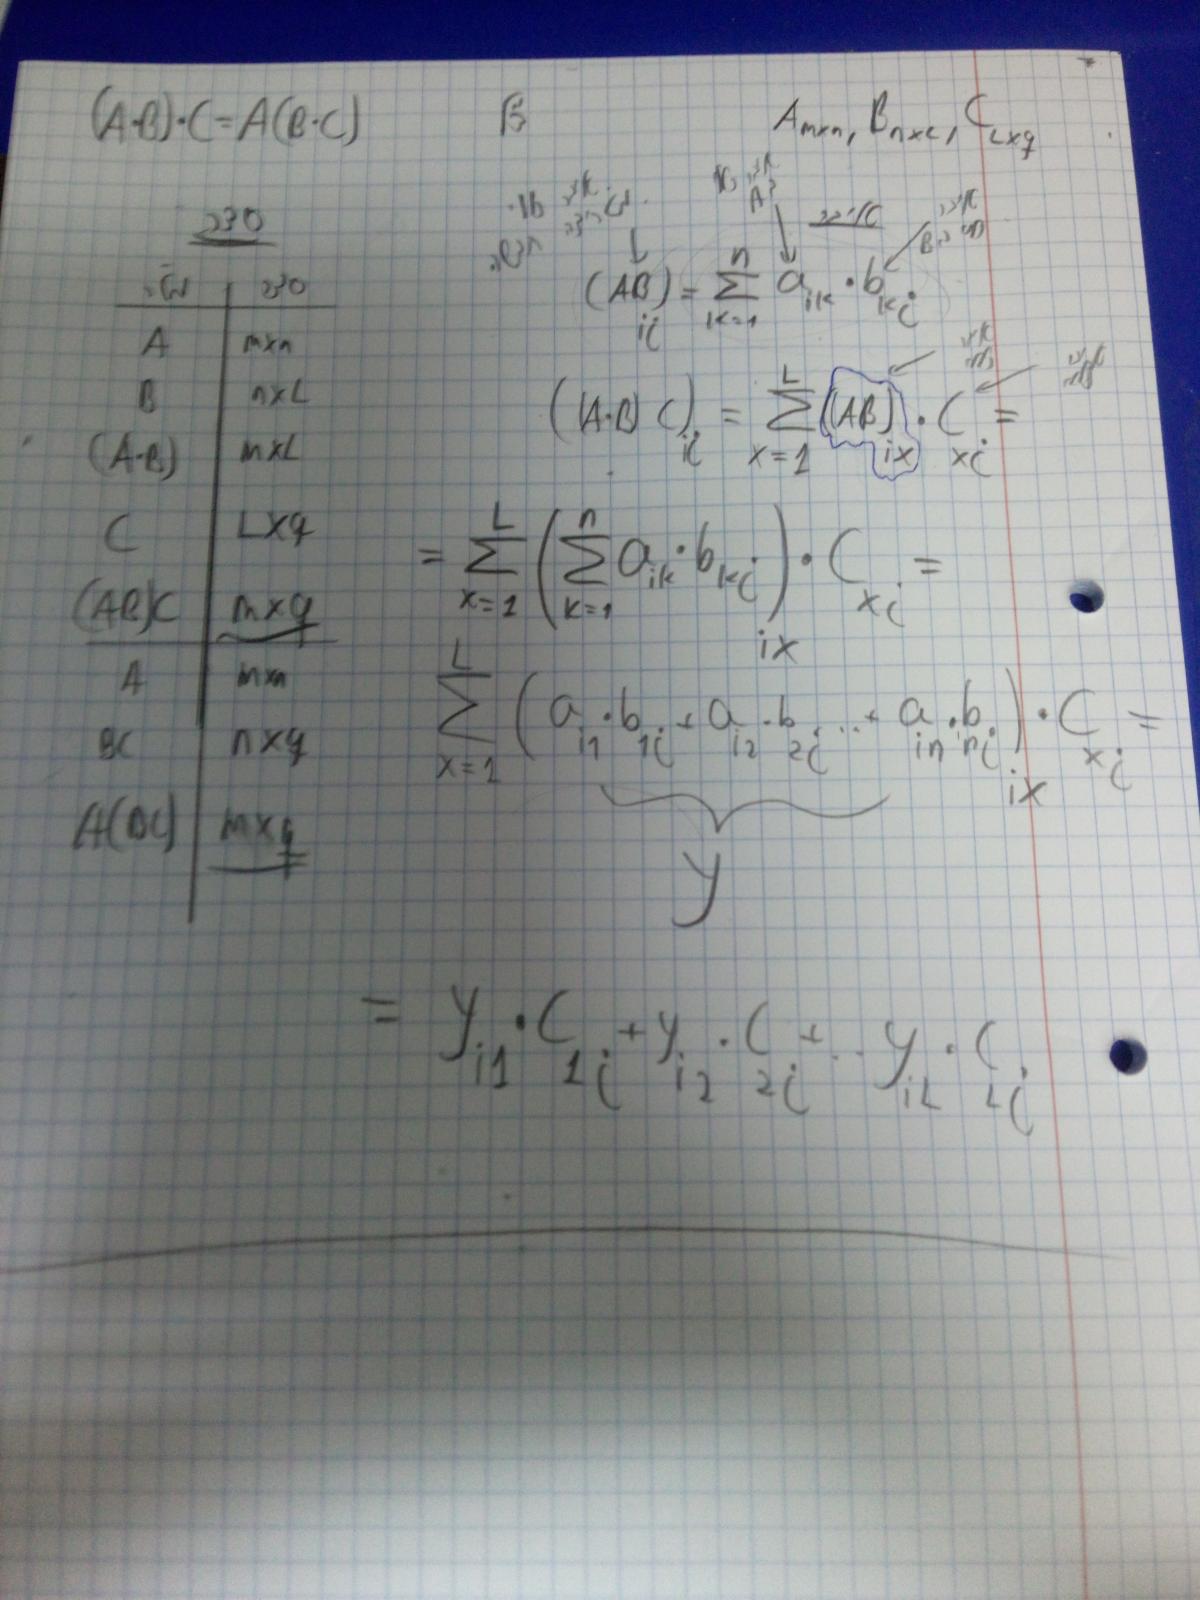 (A·B)·C=A(B·C)
A_{m×n}, B_{n×L}, C_{L×q}
סדר
סדר
A | m×n
B | n×L
(A·B) | m×L
C | L×q
(AB)C | m×q
A | m×n
BC | n×q
A(BC) | m×q
(AB)_{ij} = \sum_{k=1}^{n} a_{ik} · b_{kj}
((A·B) C)_{ij} = \sum_{x=1}^{L} (AB)_{ix} · C_{xj} =
= \sum_{x=1}^{L} ( \sum_{k=1}^{n} a_{ik} · b_{kj} )_{ix} · C_{xj} =
\sum_{x=1}^{L} ( a_{i1} · b_{1j} + a_{i2} · b_{2j} ... + a_{in} · b_{nj} )_{ix} · C_{xj} =
y
= y_{i1} · C_{1j} + y_{i2} · C_{2j} + ... y_{iL} · C_{Lj}